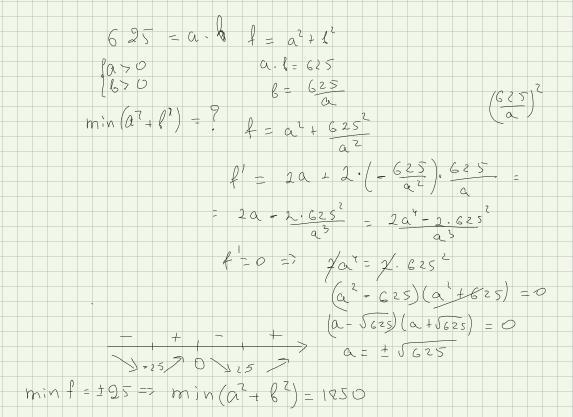 625 = a · b
{ a > 0
{ b > 0
min(a² + b²) = ?
f = a² + b²
a · b = 625
b = 625/a
f = a² + 625²/a²
(625/a)²
f' = 2a + 2 · (- 625/a²) · 625/a =
= 2a - 2·625²/a³ = 2a⁴ - 2·625²/a³
f' = 0 => 2a⁴ = 2 · 625²
(a² - 625)(a² + 625) = 0
(a - √625)(a + √625) = 0
a = ± √625
- + - +
-25 0 25
min f = ±25 => min(a² + b²) = 1250